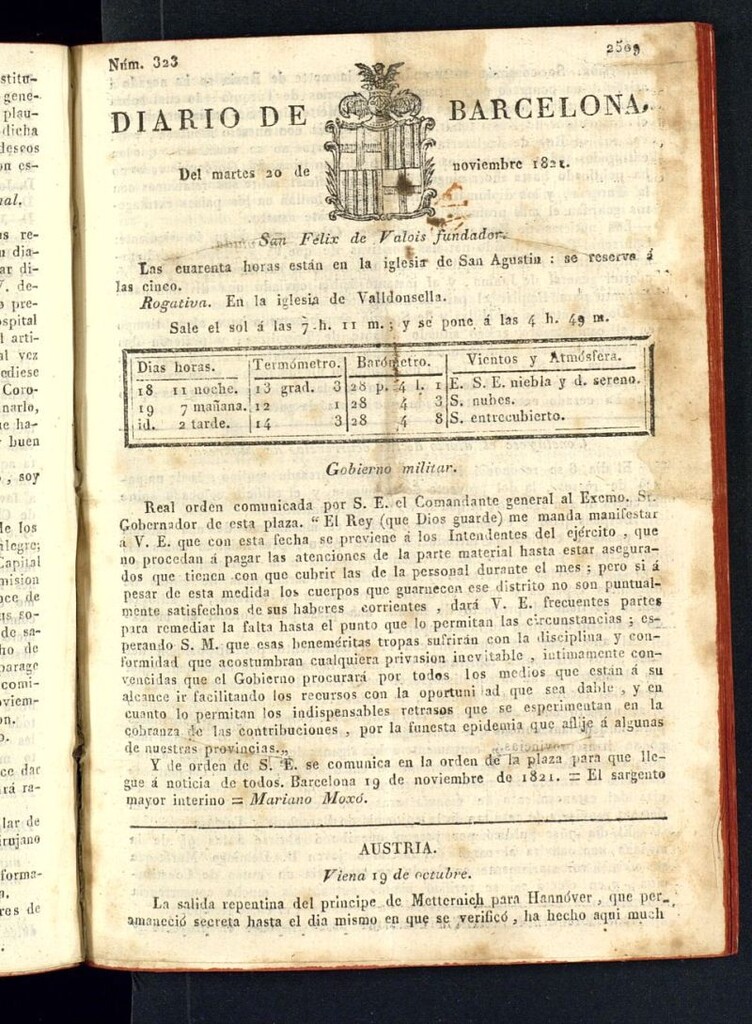 stitu-
gene-
plau-
dicha
deseos
on es-
al.
as re-
dia-
ar di-
V. de-
pre-
ospital
arti-
al vez
ediese
Coro-
narlo,
ue ha-
buen
, soy
de los
alegre;
Capital
mision
nce de
us so-
de sa-
ho de
parage
comi-
oviem-
on.
ce dar
rá ra-
lar de
irujano
forma-
res de
Núm. 323
2509
DIARIO DE BARCELONA,
Del martes 20 de noviembre 1821.
San Félix de Valois fundador.
Las cuarenta horas están en la iglesia de San Agustin : se reserva á
las cinco.
Rogativa. En la iglesia de Valldonsella.
Sale el sol á las 7 h. 11 m. ; y se pone á las 4 h. 49 m.
Dias horas. Termómetro. Barómetro. Vientos y Atmósfera.
18 11 noche. 13 grad. 3 28 p. 4 l. 1 E. S. E. niebla y d. sereno.
19 7 mañana. 12 1 28 4 3 S. nubes.
id. 2 tarde. 14 3 28 4 8 S. entrecubierto.
Gobierno militar.
Real orden comunicada por S. E. el Comandante general al Excmo. Sr.
Gobernador de esta plaza. “ El Rey (que Dios guarde) me manda manifestar
á V. E. que con esta fecha se previene á los Intendentes del ejército , que
no procedan á pagar las atenciones de la parte material hasta estar asegura-
dos que tienen con que cubrir las de la personal durante el mes ; pero si á
pesar de esta medida los cuerpos que guarnecen ese distrito no son puntual-
mente satisfechos de sus haberes corrientes , dará V. E. frecuentes partes
para remediar la falta hasta el punto que lo permitan las circunstancias ; es-
perando S. M. que esas beneméritas tropas sufrirán con la disciplina y con-
formidad que acostumbran cualquiera privasion inevitable , intimamente con-
vencidas que el Gobierno procurará por todos los medios que están á su
alcance ir facilitando los recursos con la oportunidad que sea dable , y en
cuanto lo permitan los indispensables retrasos que se esperimentan en la
cobranza de las contribuciones , por la funesta epidemia que aflije á algunas
de nuestras provincias.,,
Y de orden de S. E. se comunica en la orden de la plaza para que lle-
gue á noticia de todos. Barcelona 19 de noviembre de 1821. = El sargento
mayor interino = Mariano Moxó.
AUSTRIA.
Viena 19 de octubre.
La salida repentina del principe de Metternich para Hannóver , que per-
amaneció secreta hasta el dia mismo en que se verificó , ha hecho aqui much